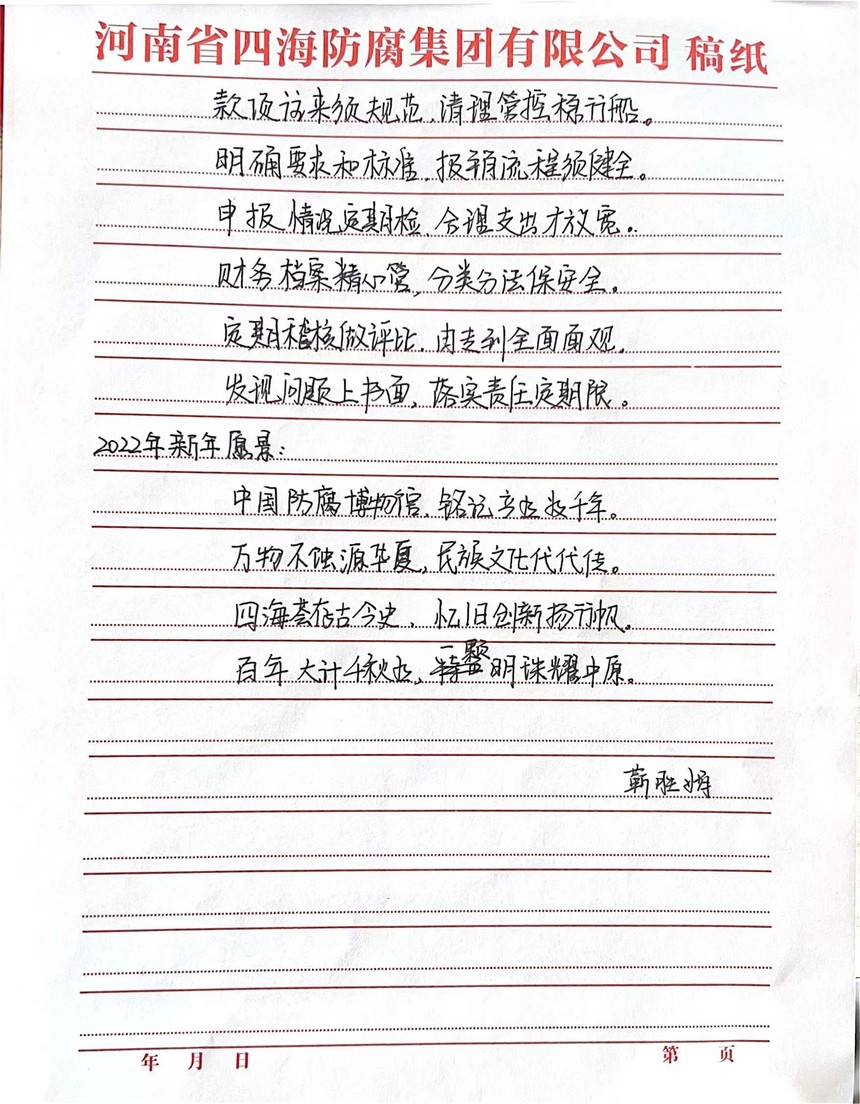 河南省四海防腐集团有限公司 稿纸
款项往来须规范,清理管控稳行船。
明确要求和标准,报销流程须健全。
申报情况定期检,合理支出才放宽。
财务档案精心管,分类分法保安全。
定期稽核做评比,由走到全面面观。
发现问题上书面,落实责任定期限。
2022年新年愿景:
中国防腐博物馆,铭记产业数千年。
万物不蚀源华夏,民族文化代代传。
四海荟存古今史,忆旧创新扬行帆。
百年大计千秋业,一颗明珠耀中原。
靳胜娟
年 月 日
第 页